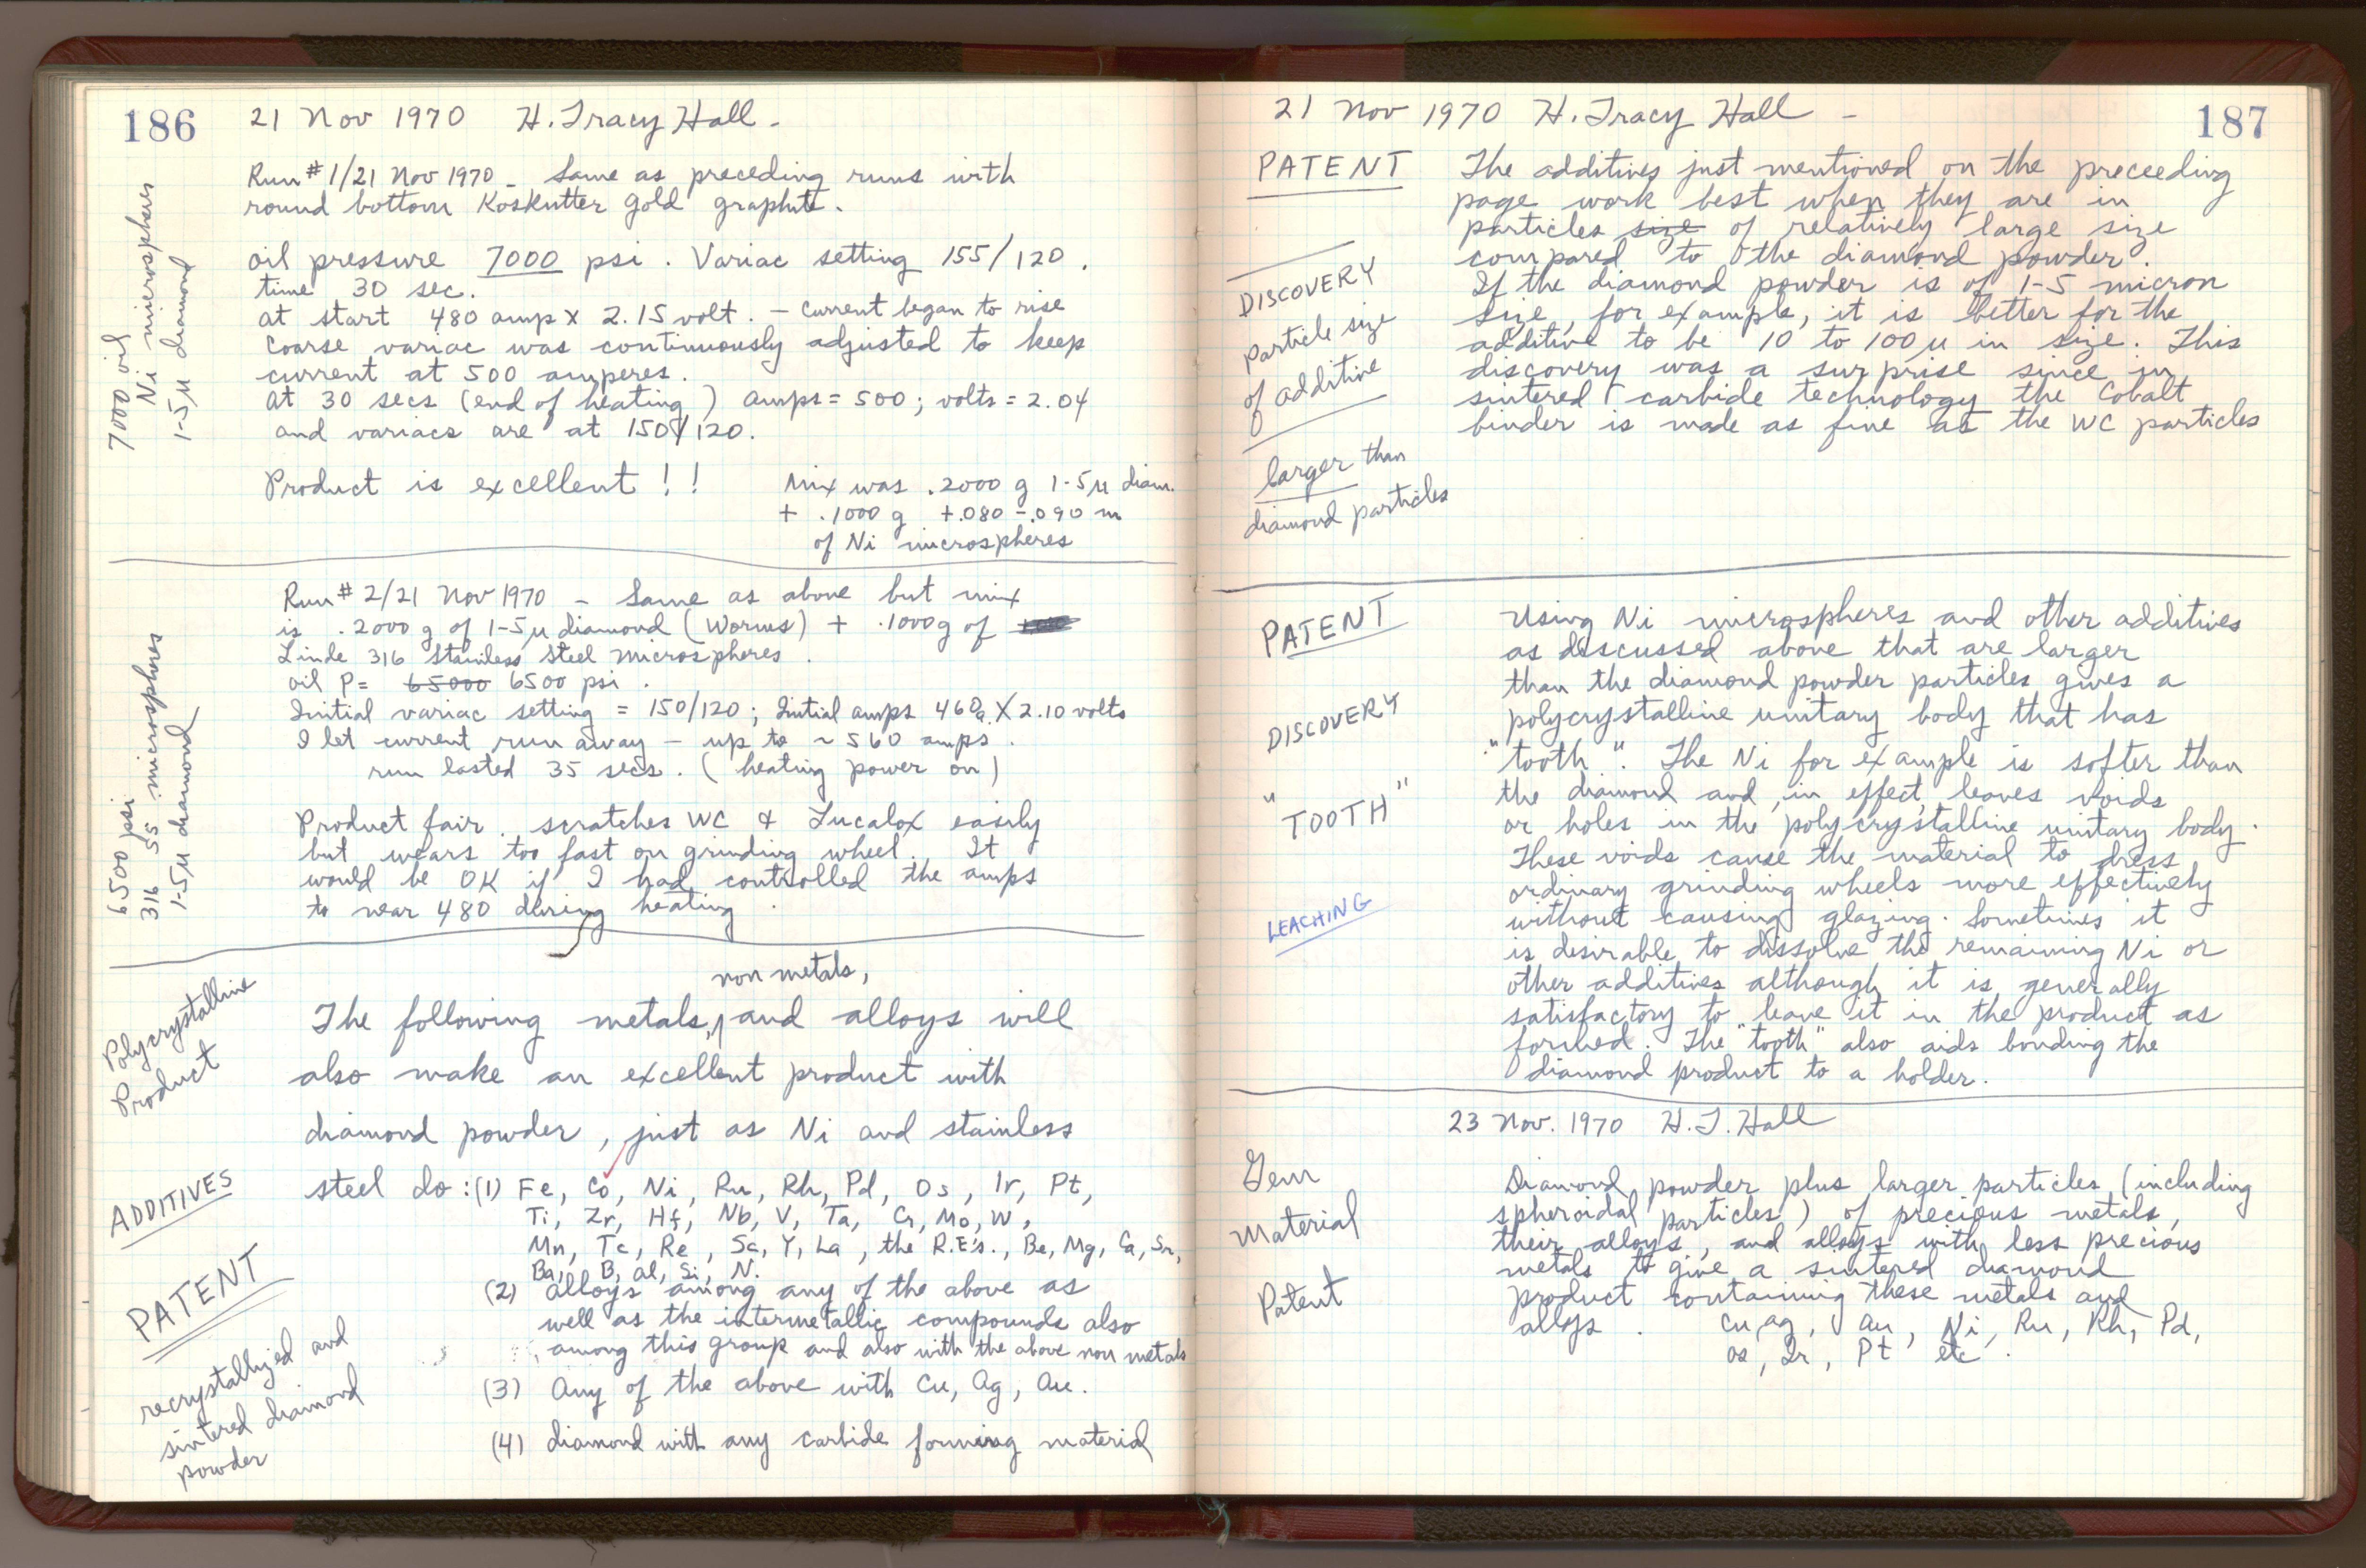 186
21 Nov 1970 H. Tracy Hall -
7000 oil
Ni microspheres
1-5µ diamond
Run # 1/21 Nov 1970 - Same as preceding runs with
round bottom Koskutter gold graphite.
oil pressure 7000 psi. Variac setting 155/120.
time 30 sec.
at start 480 amp x 2.15 volt. - current began to rise
coarse variac was continuously adjusted to keep
current at 500 amperes.
at 30 secs (end of heating) amps = 500; volts = 2.04
and variacs are at 150/120.
Product is excellent!!
Mix was .2000 g 1-5µ diam.
+ .1000 g +.080 -.090 m
of Ni microspheres
6500 psi
316 SS microspheres
1-5µ diamond
Run # 2/21 Nov 1970 - Same as above but mix
is .2000 g of 1-5µ diamond (Worms) + .1000g of
Linde 316 stainless steel microspheres.
oil P= 65000 6500 psi.
Initial variac setting = 150/120; Initial amps 460a X 2.10 volts
I let current run away - up to ~ 560 amps.
run lasted 35 secs. (heating power on)
Product fair. scratches WC & Lucalox easily
but wears too fast on grinding wheel. It
would be OK if I had controlled the amps
to near 480 during heating.
Polycrystalline
Product
non metals,
The following metals, and alloys will
also make an excellent product with
diamond powder, just as Ni and stainless
ADDITIVES
steel do: (1) Fe, Co, Ni, Ru, Rh, Pd, Os, Ir, Pt,
Ti, Zr, Hf, Nb, V, Ta, Cr, Mo, W,
Mn, Tc, Re, Sc, Y, La, the R.E's., Be, Mg, Ca, Sr,
Ba, B, Al, Si, N.
PATENT
(2) alloys among any of the above as
well as the intermetallic compounds also
among this group and also with the above non metals
(3) Any of the above with Cu, Ag, Au.
(4) diamond with any carbide forming material
recrystallized and
sintered diamond
powder
21 Nov 1970 H. Tracy Hall -
187
PATENT
The additives just mentioned on the preceeding
page work best when they are in
particles size of relatively large size
compared to the diamond powder.
If the diamond powder is of 1-5 micron
size, for example, it is better for the
additive to be 10 to 100µ in size. This
discovery was a surprise since in
sintered carbide technology the Cobalt
binder is made as fine as the WC particles
DISCOVERY
particle size
of additive
larger than
diamond particles
PATENT
DISCOVERY
"TOOTH"
LEACHING
Using Ni microspheres and other additives
as discussed above that are larger
than the diamond powder particles gives a
polycrystalline unitary body that has
"tooth". The Ni for example is softer than
the diamond and, in effect, leaves voids
or holes in the polycrystalline unitary body.
These voids cause the material to dress
ordinary grinding wheels more effectively
without causing glazing. Sometimes it
is desirable to dissolve the remaining Ni or
other additives although it is generally
satisfactory to leave it in the product as
formed. The "tooth" also aids bonding the
diamond product to a holder.
23 Nov. 1970 H. T. Hall
Gem
Material
Patent
Diamond powder plus larger particles (including
spheroidal particles) of precious metals,
their alloys, and alloys with less precious
metals to give a sintered diamond
product containing these metals and
alloys. Cu, Ag, Au, Ni, Ru, Rh, Pd,
Os, Ir, Pt etc.